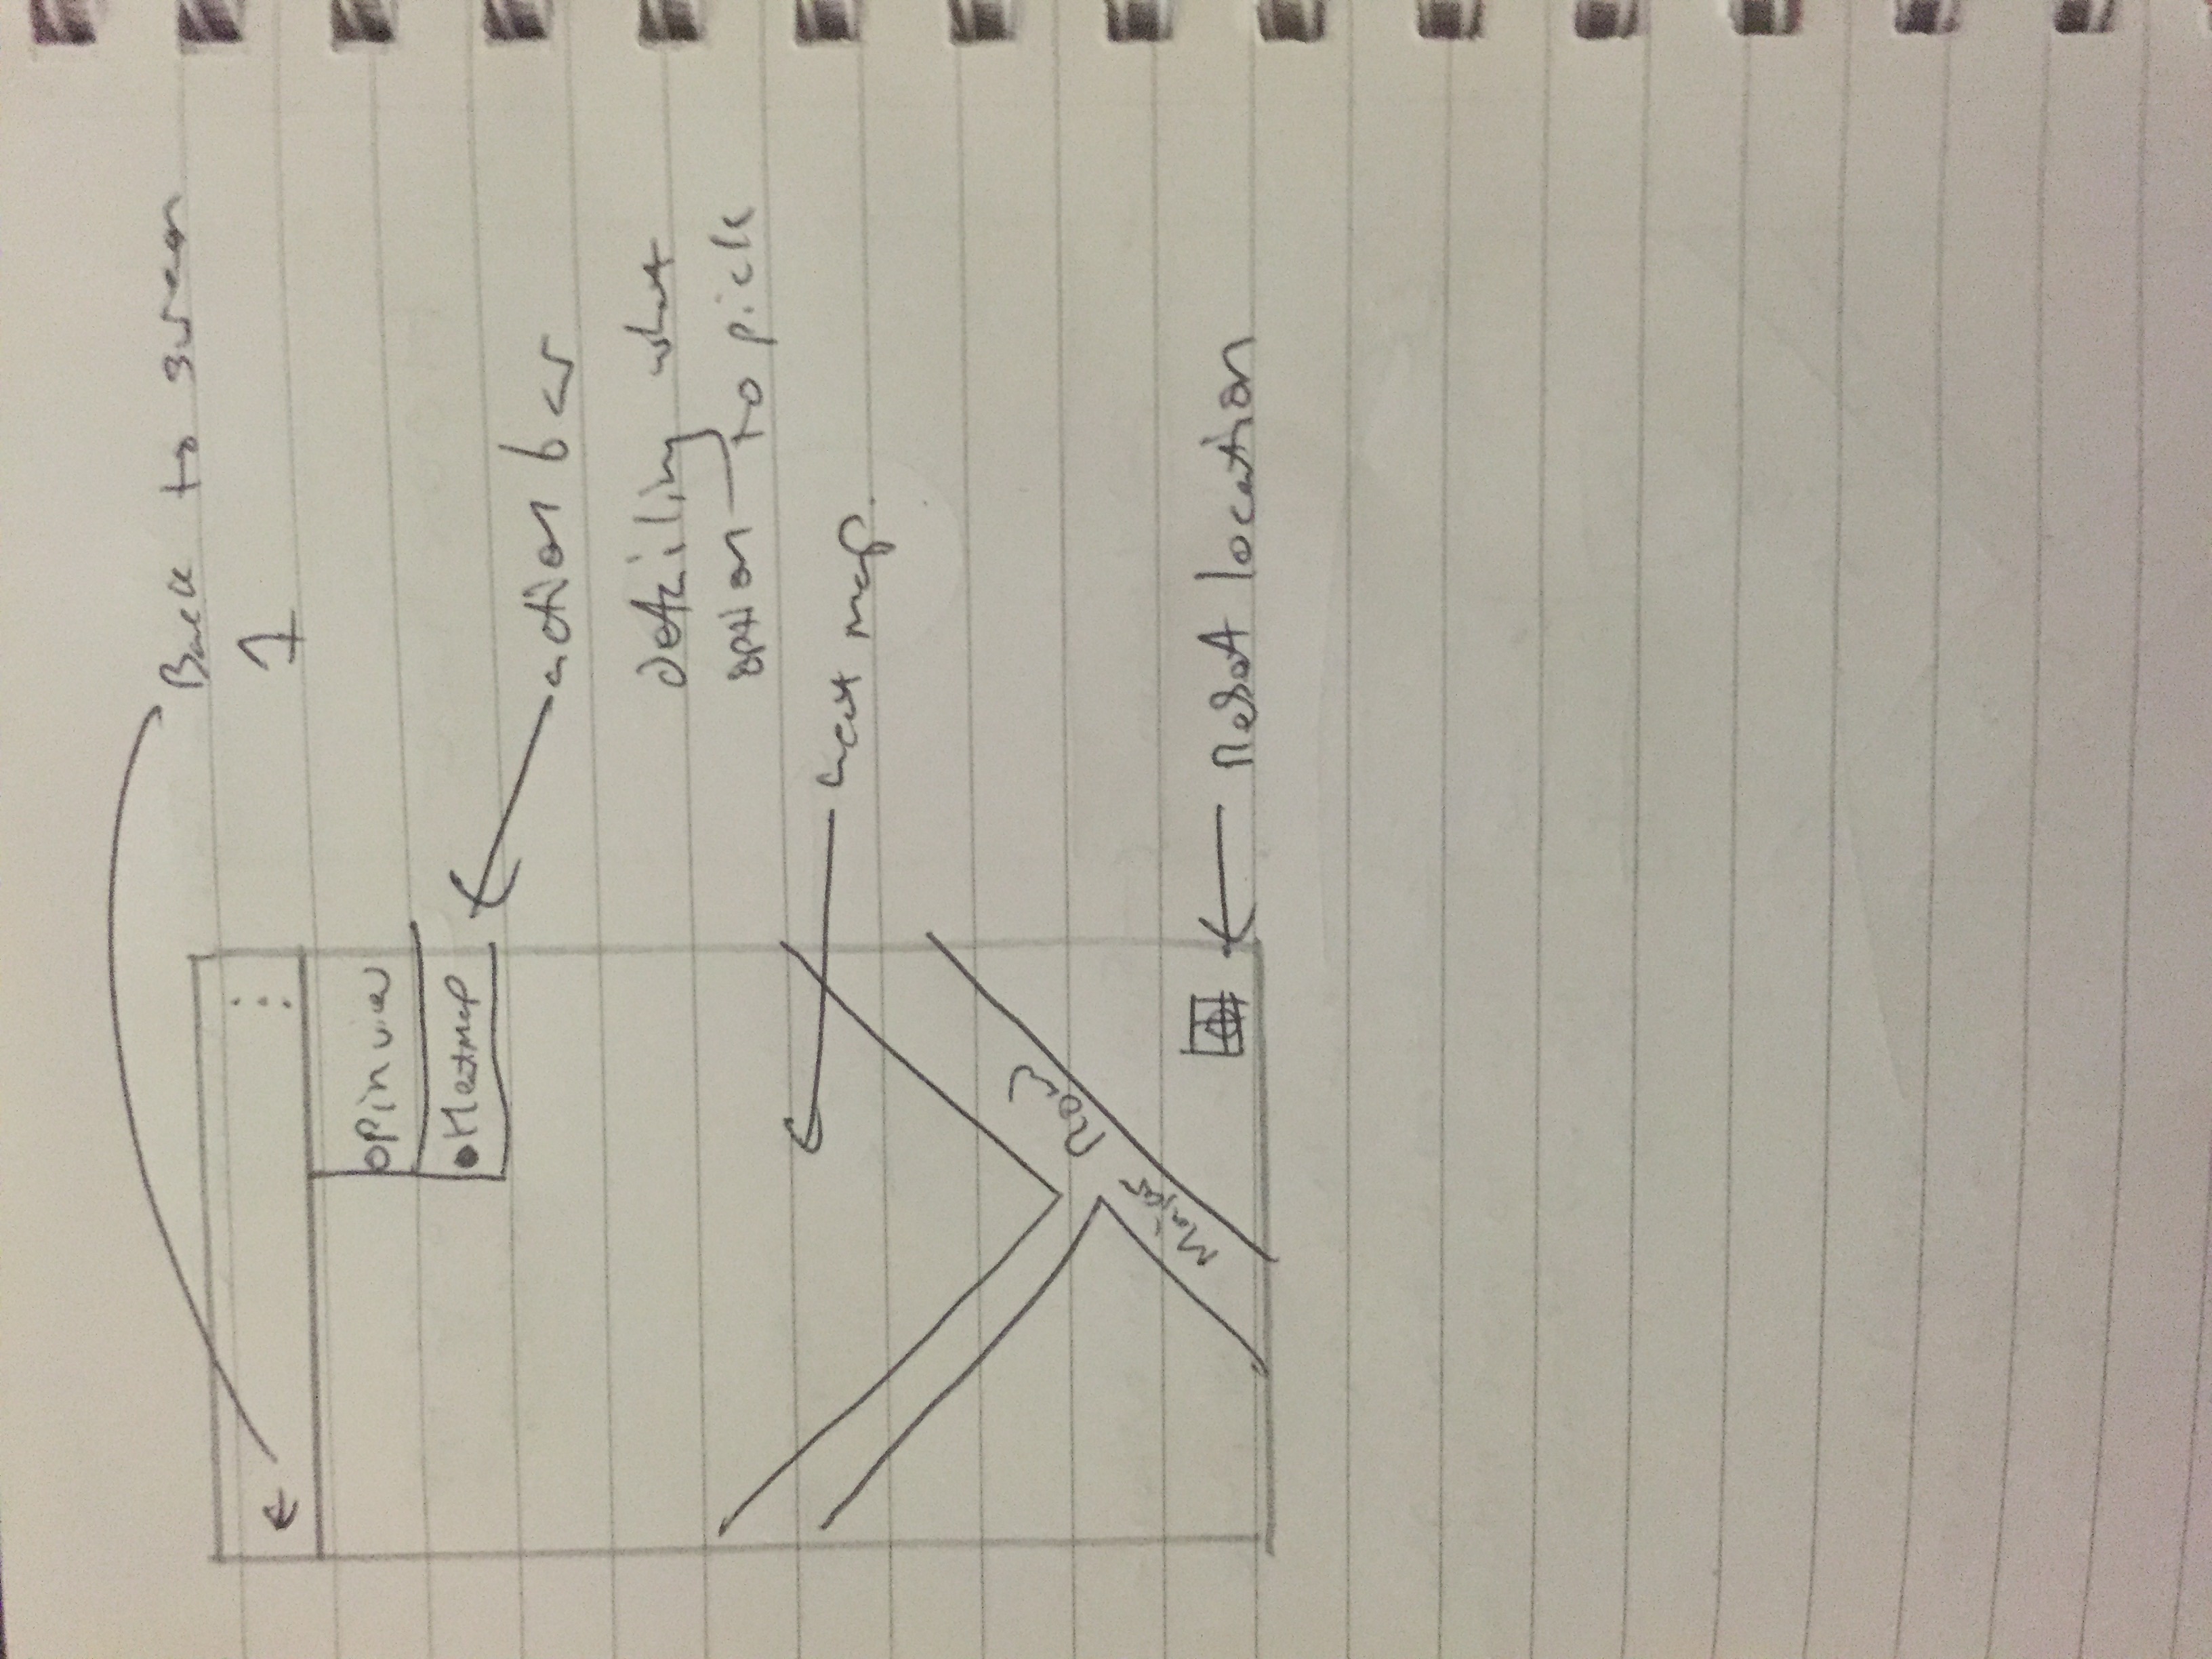 Back to screen
1
Pin view
Heatmap
action bar
detailing what
option to pick
heat map.
Major Road
Reset location